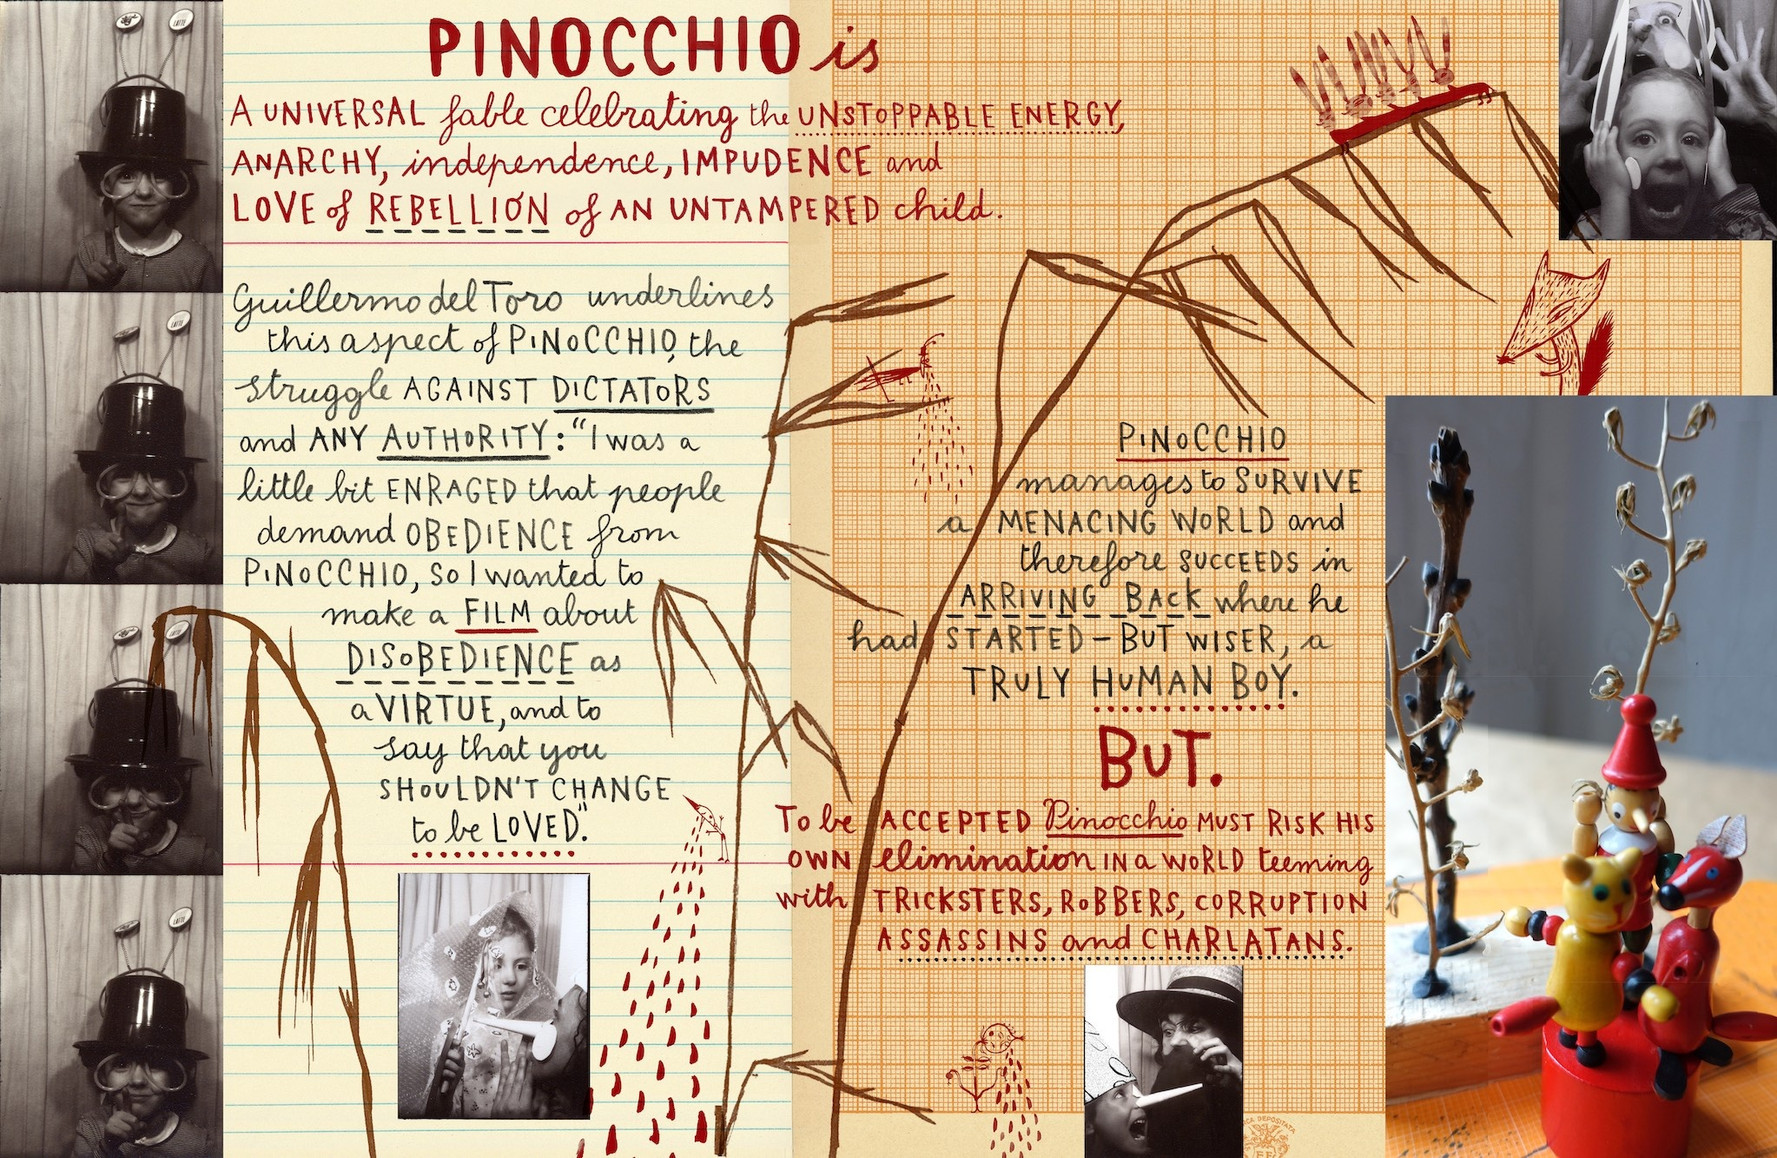 PINOCCHIO is
A UNIVERSAL fable celebrating the UNSTOPPABLE ENERGY,
ANARCHY, independence, IMPUDENCE and
LOVE of REBELLION of AN UNTAMPERED child.
Guillermo del Toro underlines
this aspect of PINOCCHIO, the
struggle AGAINST DICTATORS
and ANY AUTHORITY: "I was a
little bit ENRAGED that people
demand OBEDIENCE from
PINOCCHIO, SO I wanted to
make a FILM about
DISOBEDIENCE as
a VIRTUE, and to
say that you
SHOULDN'T CHANGE
to be LOVED".
PINOCCHIO
manages to SURVIVE
a MENACING WORLD and
therefore SUCCEEDS in
ARRIVING BACK where he
had STARTED – BUT WISER, a
TRULY HUMAN BOY.
BUT.
To be ACCEPTED Pinocchio MUST RISK HIS
OWN elimination IN a WORLD teeming
with TRICKSTERS, ROBBERS, CORRUPTION
ASSASSINS and CHARLATANS.
LATTE
LATTE
LATTE
LATTE
DEPOSITATA